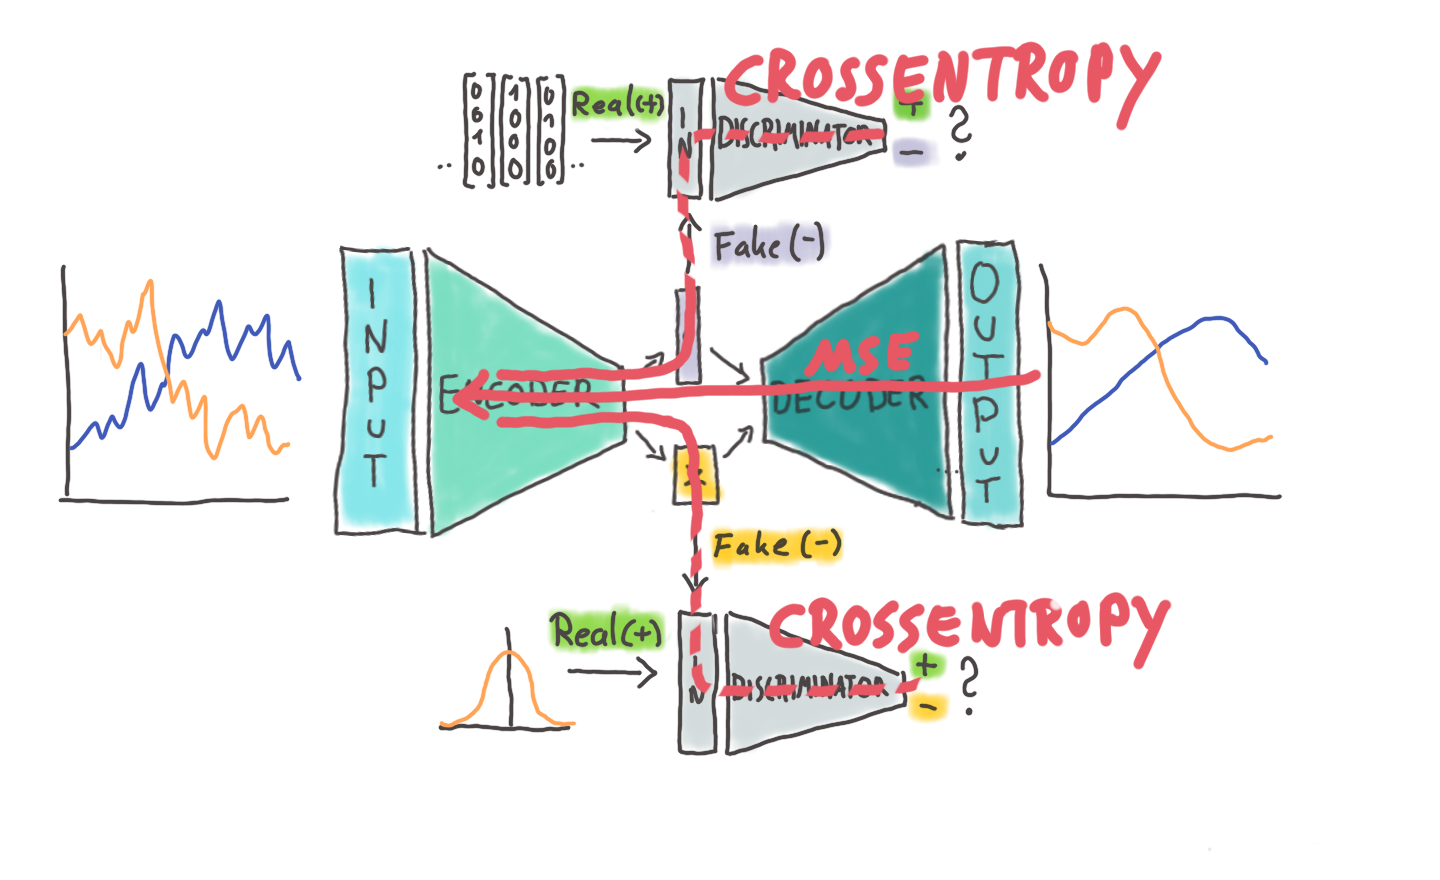 CROSSENTROPY
0 1 0
0 0 1
1 0 0
0 0 0
..
..
Real(+)
IN
DISCRIMINATOR
+
-
?
Fake(-)
INPUT
ENCODER
MSE
DECODER
...
OUTPUT
Fake(-)
CROSSENTROPY
Real(+)
IN
DISCRIMINATOR
+
-
?